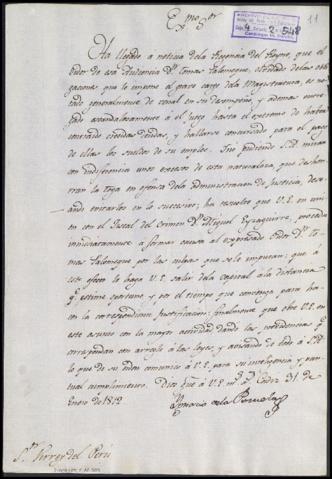 Exmo Sor
11
2-548
Ha llegado a noticia dela Regencia del Reyno, que el
Oidor de esa Audiencia Dn. Tomas Palomeque, olvidado delas obli
gaciones que le impone el grave cargo dela Magistratura, es no
tado generalmente de venal en su desempeño, y ademas entre
gado escandalosamente á el juego hasta el extremo de haber
contraido crecidas deudas, y hallarse concursado para el pago
de ellas los sueldos de su empleo. No pudiendo S.A. mirar
con indiferencia unos excesos de esta naturaleza, que deshon
rran la toga en ofensa dela administracion de Justicia, dese
ando evitarlos en lo succesivo; ha resuelto que V.E. en u
nion con el Fiscal del Crimen Dn. Miguel Eyzaguirre, proceda
inmediatamente a formar causa al expresado Oidor Dn. To
mas Palomeque por las culpas que sele imputan; que á
este efecto le haga V.E. salir dela capital a la distancia
q. estime oportuno y por el tiempo que convenga para ha
cer la correspondiente justificacion; finalmente que obre V.E. en
este asunto con la mayor actividad dando las providencias q.
correspondan con arreglo á las leyes, y avisando de todo á S.A.
lo que de su orden comunico á V.E. para su inteligencia y pun
tual cumplimiento. Dios gue á V.E. ms. as. Cadiz 31 de
Enero de 1812
Ignacio dela Pezuela
Sr. Virrey del Perú